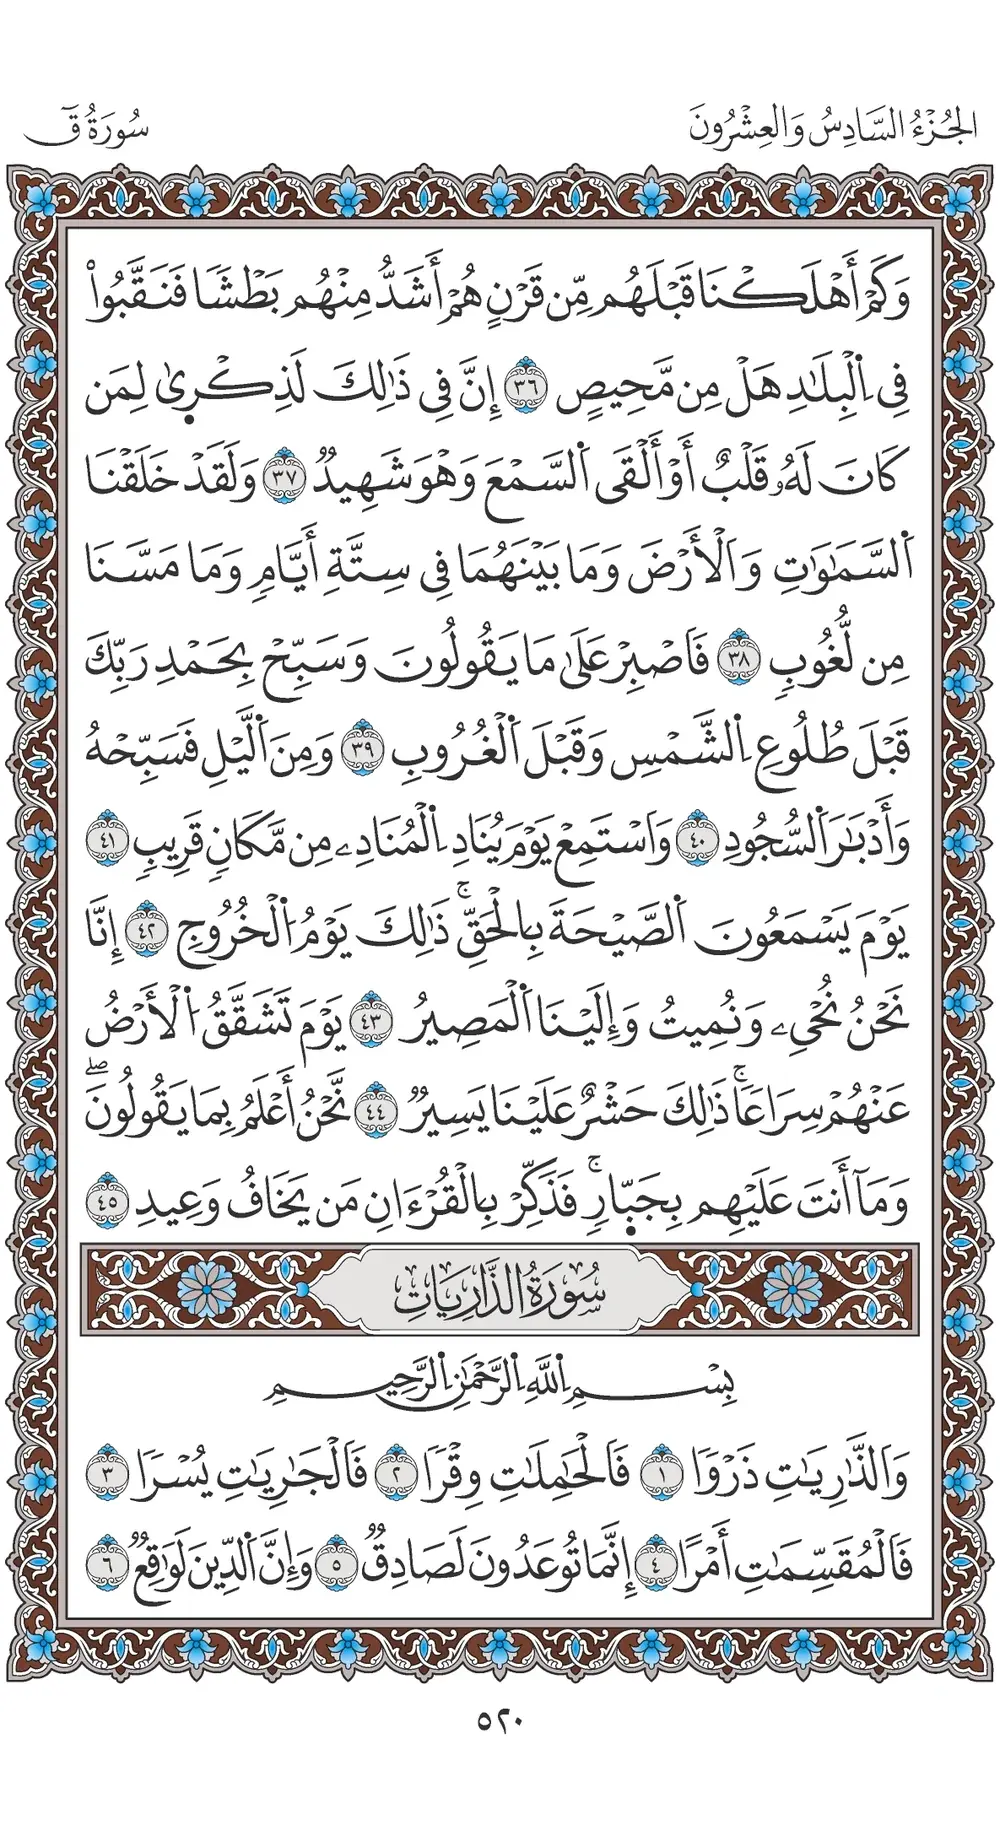 الجُزْءُ السَّادِسُ وَالعِشْرُونَ
سُورَةُ قٓ
وَكَمۡ أَهۡلَكۡنَا قَبۡلَهُم مِّن قَرۡنٍ هُمۡ أَشَدُّ مِنۡهُم بَطۡشٗا فَنَقَّبُواْ
فِي اِ۬لۡبِلَٰدِ هَلۡ مِن مَّحِيصٍ ٣٦ إِنَّ فِي ذَٰلِكَ لَذِكۡرۭيٰ لِمَن
كَانَ لَهُۥ قَلۡبٌ أَوۡ أَلۡقَى اَ۬لسَّمۡعَ وَهۡوَ شَهِيدٞ ٣٧ وَلَقَدۡ خَلَقۡنَا
اَ۬لسَّمَٰوَٰتِ وَالۡأَرۡضَ وَمَا بَيۡنَهُمَا فِي سِتَّةِ أَيَّامٖ وَمَا مَسَّنَا
مِن لُّغُوبٖ ٣٨ فَاصۡبِرۡ عَلَىٰ مَا يَقُولُونَ وَسَبِّحۡ بِحَمۡدِ رَبِّكَ
قَبۡلَ طُلُوعِ اِ۬لشَّمۡسِ وَقَبۡلَ اَ۬لۡغُرُوبِ ٣٩ وَمِنَ اَ۬لَّيۡلِ فَسَبِّحۡهُ
وَأَدۡبَٰرَ اَ۬لسُّجُودِ ٤٠ وَاسۡتَمِعۡ يَوۡمَ يُنَادِ اِ۬لۡمُنَادِۦ مِن مَّكَانٖ قَرِيبٖ ٤١
يَوۡمَ يَسۡمَعُونَ اَ۬لصَّيۡحَةَ بِالۡحَقِّۚ ذَٰلِكَ يَوۡمُ اُ۬لۡخُرُوجِ ٤٢ إِنَّا
نَحۡنُ نُحۡيِۦ وَنُمِيتُ وَإِلَيۡنَا اَ۬لۡمَصِيرُ ٤٣ يَوۡمَ تَشَقَّقُ اُ۬لۡأَرۡضُ
عَنۡهُمۡ سِرَاعٗاۚ ذَٰلِكَ حَشۡرٌ عَلَيۡنَا يَسِيرٞ ٤٤ نَّحۡنُ أَعۡلَمُ بِمَا يَقُولُونَۖ
وَمَآ أَنتَ عَلَيۡهِم بِجَبّ۪ارٖۚ فَذَكِّرۡ بِالۡقُرۡءَانِ مَن يَخَافُ وَعِيدِ ٤٥
سُورَةُ الذَّارِيَاتِ
بِسۡمِ اِ۬للَّهِ اِ۬لرَّحۡمَٰنِ اِ۬لرَّحِيمِ
وَالذَّٰرِيَٰتِ ذَرۡوٗا ١ فَالۡحَٰمِلَٰتِ وِقۡرٗا ٢ فَالۡجَٰرِيَٰتِ يُسۡرٗا ٣
فَالۡمُقَسِّمَٰتِ أَمۡرًا ٤ إِنَّمَا تُوعَدُونَ لَصَادِقٞ ٥ وَإِنَّ اَ۬لدِّينَ لَوَٰقِعٞ ٦
٥٢٠